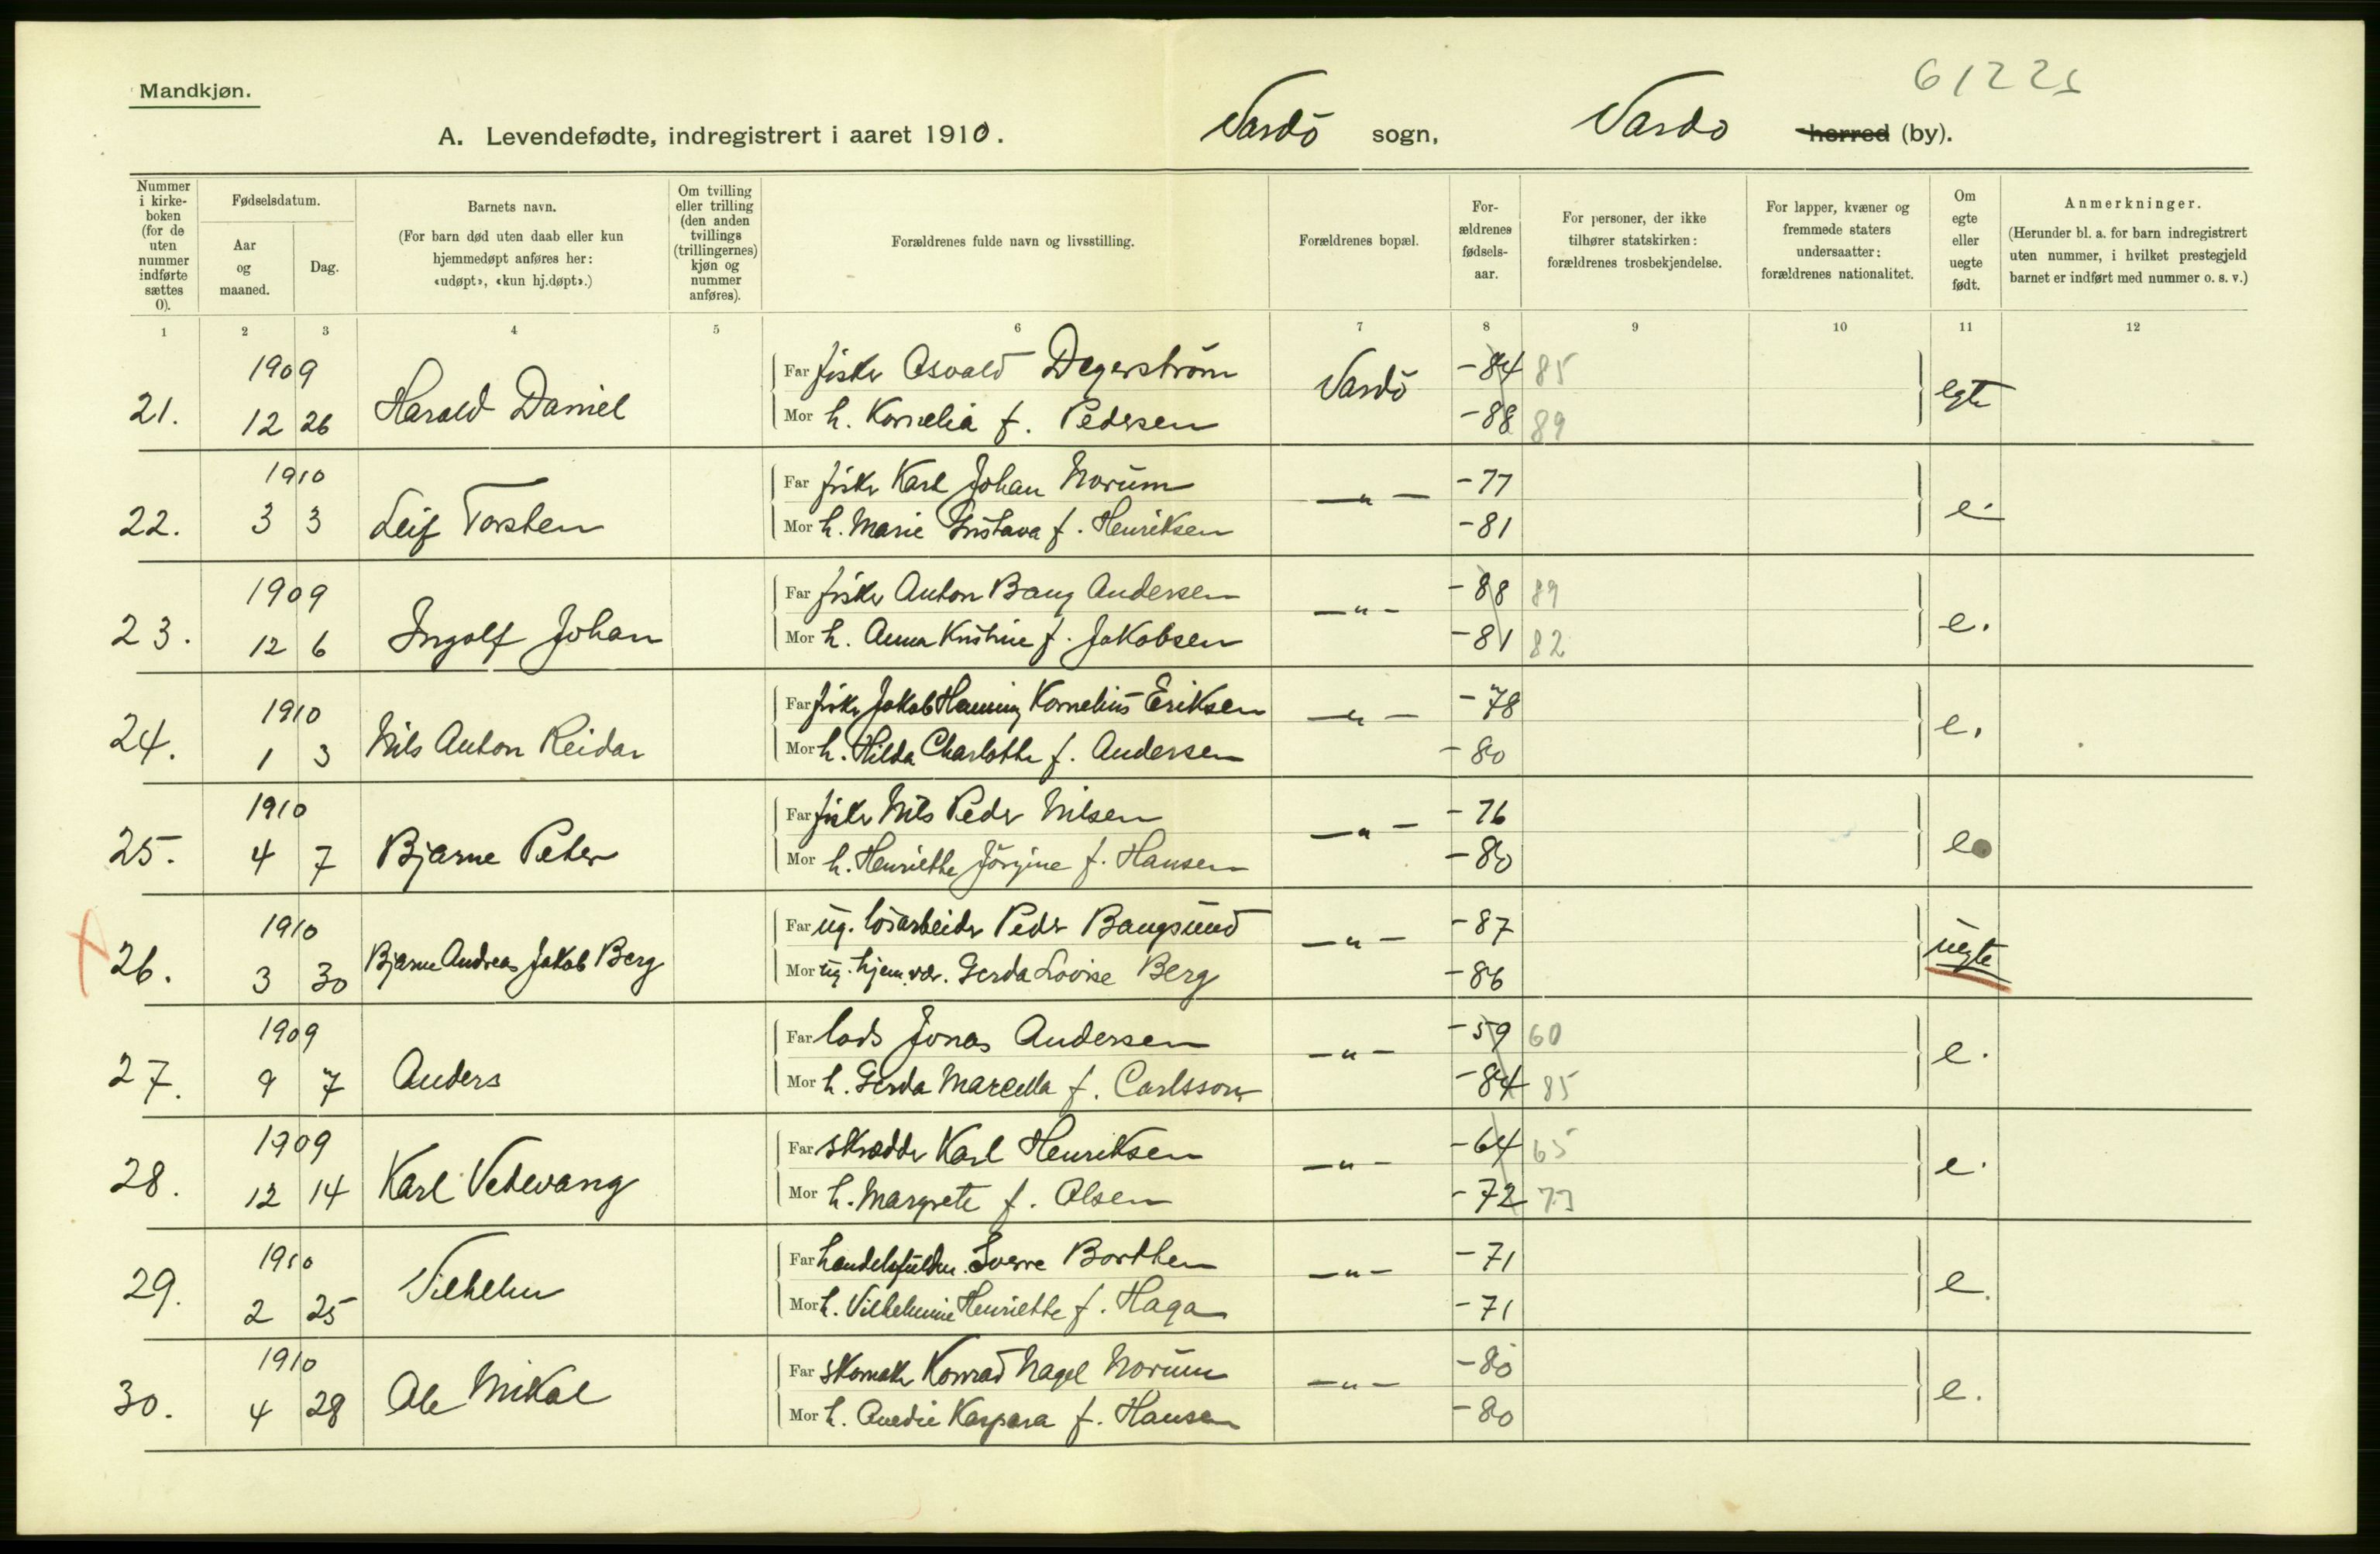 61225
Mandkjøn.
A. Levendefødte, indregistrert i aaret 1910. Vardö sogn, Vardö herred (by).
Nummer i kirke-boken (for de uten nummer indførte sættes 0).
Fødselsdatum.
Aar og maaned.
Dag.
Barnets navn.
(For barn død uten daab eller kun hjemmedøpt anføres her: «udøpt», «kun hj.døpt».)
Om tvilling eller trilling (den anden tvillings (trillingernes) kjøn og nummer anføres).
Forældrenes fulde navn og livsstilling.
Forældrenes bopæl.
For-ældrenes fødsels-aar.
For personer, der ikke tilhører statskirken: forældrenes trosbekjendelse.
For lapper, kvæner og fremmede staters undersaatter: forældrenes nationalitet.
Om egte eller uegte født.
Anmerkninger.
(Herunder bl. a. for barn indregistrert uten nummer, i hvilket prestegjeld barnet er indført med nummer o. s. v.)
1 2 3 4 5 6 7 8 9 10 11 12
1909
21. 12 26 Harald Daniel
Far fisker Osvald Degerström Vardö -84 85 egte
Mor h. Kornelia f. Pedersen -88 89
1910
22. 3 3 Leif Torsten
Far fisker Karl Johan Norum —"— -77 e.
Mor h. Marie Gustava f. Henriksen -81
1909
23. 12 6 Ingolf Johan
Far fisker Anton Bang Andersen —"— -88 89 e.
Mor h. Anna Kristine f. Jakobsen -81 82
1910
24. 1 3 Nils Anton Reidar
Far fisker Jakob Henning Kornelius Eriksen —"— -78 e.
Mor h. Hilda Charlotte f. Andersen -80
1910
25. 4 7 Bjarne Peter
Far fisker Nils Peder Nilsen —"— -76 e
Mor h. Henriette Jörgine f. Hansen -80
1910
26. 3 30 Bjarne Andreas Jakob Berg
Far ug. lösarbeider Peder Bangsund —"— -87 uegte
Mor ug. hjem. vær. Gerda Lovise Berg -86
1909
27. 9 7 Anders
Far lods Jonas Andersen —"— -59 60 e.
Mor h. Gerda Marcella f. Carlsson -84 85
1909
28. 12 14 Karl Vetevang
Far skrædder Karl Henriksen —"— -64 65 e.
Mor h. Margrete f. Olsen -72 73
1910
29. 2 25 Vilhelm
Far handelsfuldm. Sverre Borthen —"— -71 e.
Mor h. Vilhelmine Henriette f. Haga -71
1910
30. 4 28 Ole Mikal
Far skomaker Konrad Nagel Norum —"— -80 e.
Mor h. Anedie Kaspara f. Hansen -80